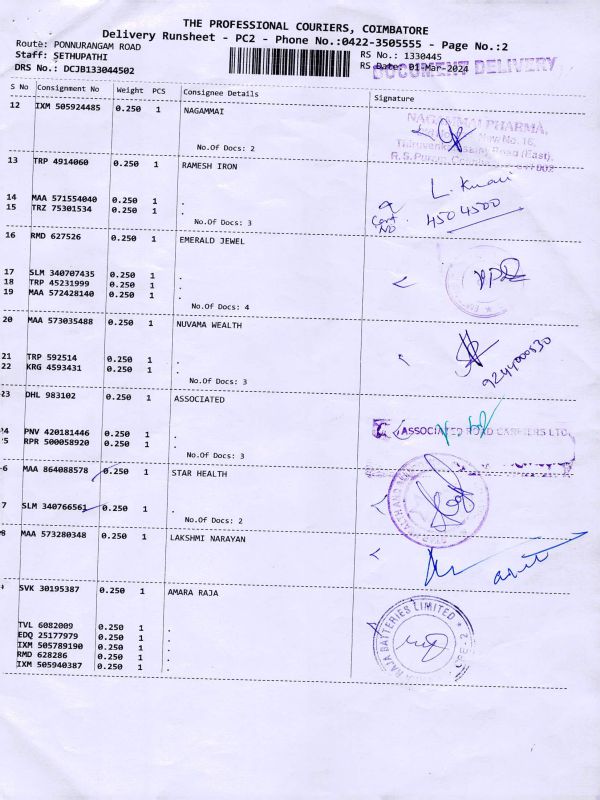 THE PROFESSIONAL COURIERS, COIMBATORE
Delivery Runsheet - PC2 - Phone No.:0422-3505555 - Page No.:2
Route: PONNURANGAM ROAD
Staff: SETHUPATHI
RS No.: 1330445
DRS No.: DCJB133044502
RS Date: 01-Mar-2024
DOCUMENT DELIVERY
S No Consignment No Weight PCS Consignee Details Signature
12 IXM 505924485 0.250 1 NAGAMMAI
No.Of Docs: 2
NAGAMMAI PHARMA,
New No. 16,
Road (East),
R.S.Puram,
13 TRP 4914060 0.250 1 RAMESH IRON
14 MAA 571554040 0.250 1 .
15 TRZ 75301534 0.250 1 .
No.Of Docs: 3
L. Kumari
Cont. NO 4504500
16 RMD 627526 0.250 1 EMERALD JEWEL
17 SLM 340707435 0.250 1 .
18 TRP 45231999 0.250 1 .
19 MAA 572428140 0.250 1 .
No.Of Docs: 4
20 MAA 573035488 0.250 1 NUVAMA WEALTH
21 TRP 592514 0.250 1 .
22 KRG 4593431 0.250 1 .
No.Of Docs: 3
9244000530
23 DHL 983102 0.250 1 ASSOCIATED
24 PNV 420181446 0.250 1 .
25 RPR 500058920 0.250 1 .
No.Of Docs: 3
ASSOCIATED ROAD CARRIERS LTD.
6 MAA 864088578 0.250 1 STAR HEALTH
7 SLM 340766561 0.250 1 .
No.Of Docs: 2
8 MAA 573280348 0.250 1 LAKSHMI NARAYAN
SVK 30195387 0.250 1 AMARA RAJA
TVL 6082009 0.250 1 .
EDQ 25177979 0.250 1 .
IXM 505789190 0.250 1 .
RMD 628286 0.250 1 .
IXM 505940387 0.250 1 .
RAJA BATTERIES LIMITED